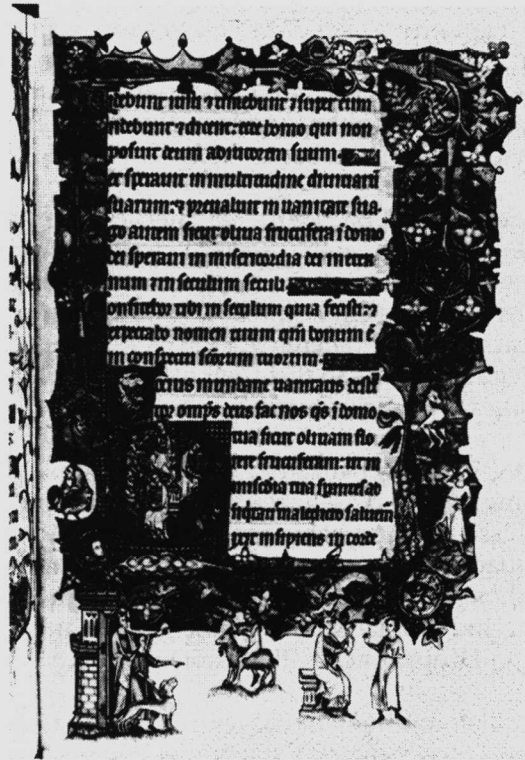 debunt iusti ⁊ timebunt ⁊ super eum
ridebunt ⁊ dicent: ecce homo qui non
posuit deum adiutorem suum
et sperauit in multitudine diuitiarū
suarum: ⁊ preualuit in uanitate sua
go autem sicut oliua fructifera ī domo
dei speraui in misericordia dei in eter
num ⁊ in seculum seculi
onfitebor tibi in seculum quia fecisti: ⁊
expectabo nomen tuum qm̄ bonum ē
in conspectu sc̄orum tuorum
mundane uanitatis
omp̄s deus fac nos q̄s ī domo
tua sicut oliuam flo
rere fructiferam: ut in
tua
insipiens in corde